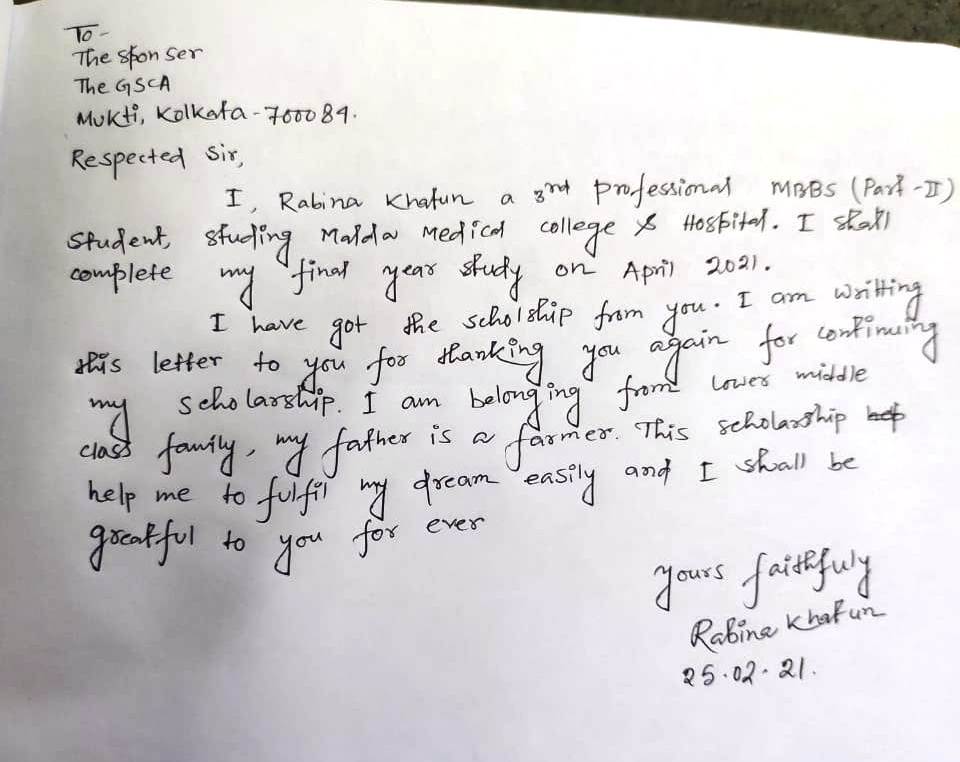 To-
The sponser
The GSCA
Mukti, Kolkata-700084.
Respected Sir,
I, Rabina Khatun a 3rd professional MBBS (Part-II)
Student, studing Malda Medical college & Hospital. I shall
complete my final year study on April 2021.
I have got the scholship from you. I am writting
this letter to you for thanking you again for continuing
my scholarship. I am belonging from lower middle
class family, my father is a farmer. This scholarship
help me to fulfil my dream easily and I shall be
greatful to you for ever
yours faithfuly
Rabina Khatun
25.02.21.